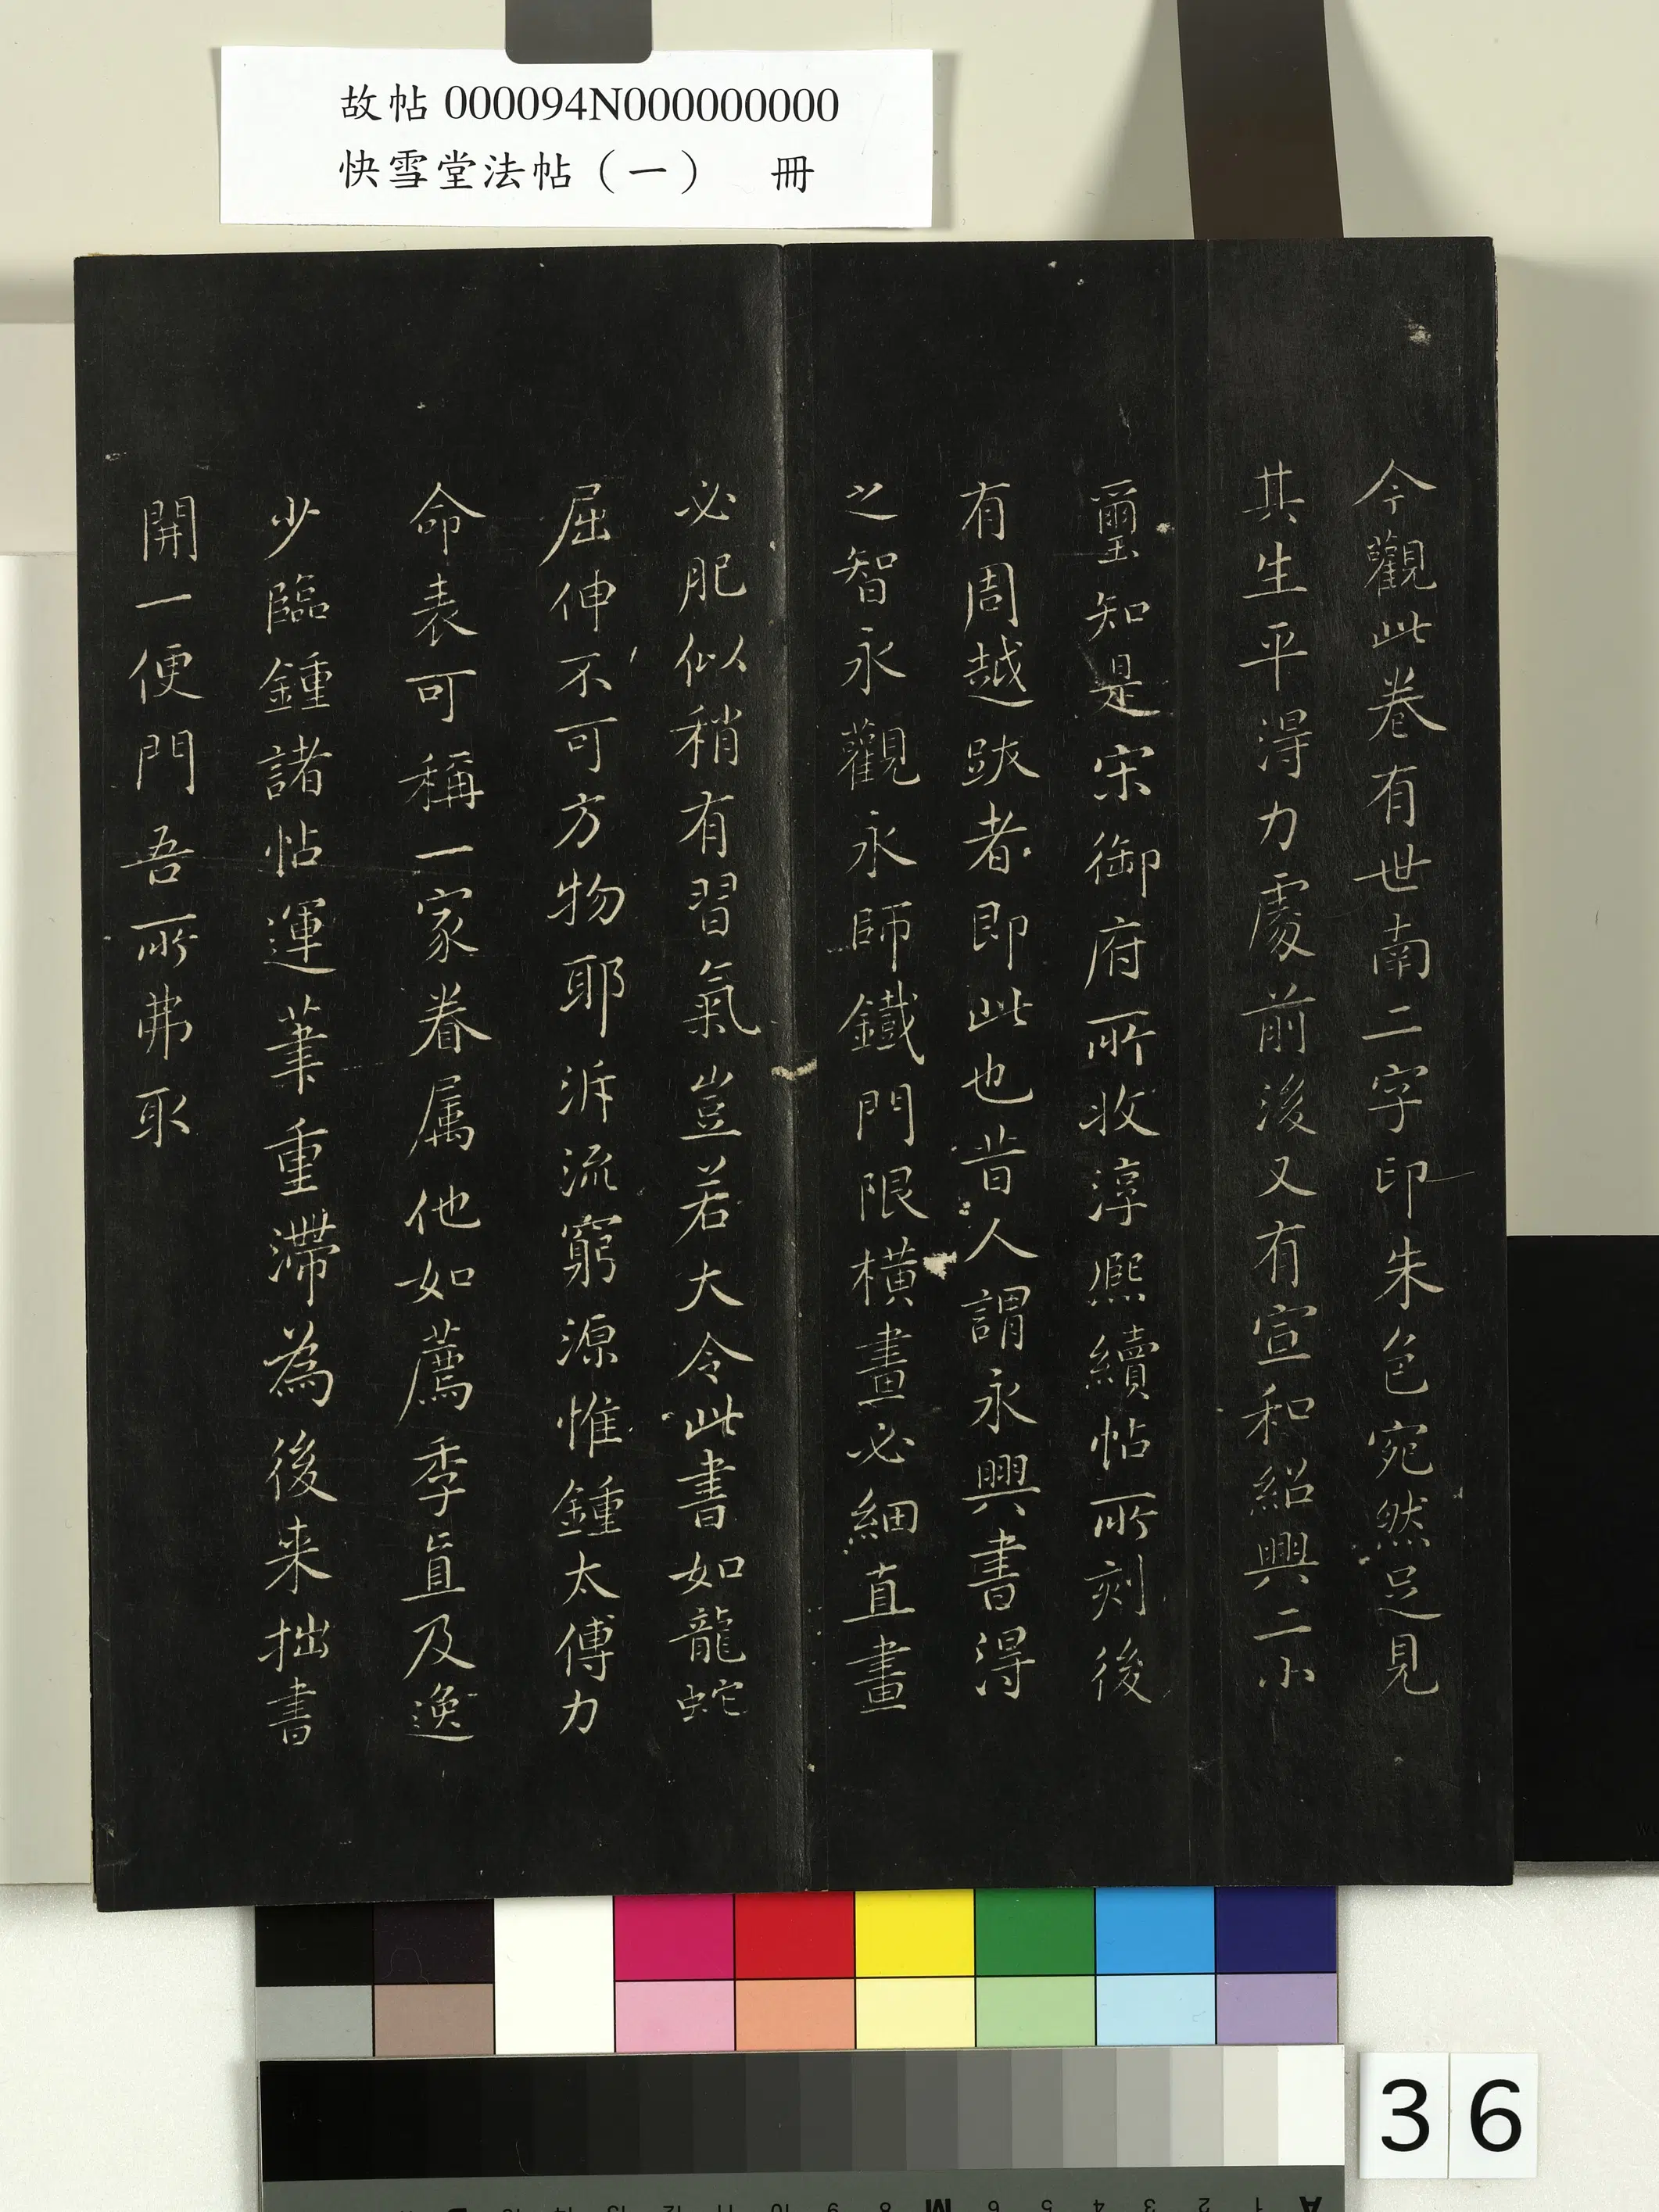 故帖000094N000000000
快雪堂法帖（一）　冊
今觀此卷有世南二字印朱色宛然足見
其生平得力處前後又有宣和紹興二小
璽知是宋御府所收淳熈續帖所刻後
有周越跋者即此也昔人謂永興書得
之智永觀永師鐵門限橫畫必細直畫
必肥似稍有習氣豈若大令此書如龍蛇
屈伸不可方物耶泝流窮源惟鍾太傅力
命表可稱一家眷属他如薦季直及逸
少臨鍾諸帖運筆重滯為後来拙書
開一便門吾所弗取
36
A 1 2 3 4 5 6 M 8 9 10 11 12 13 14 15 B